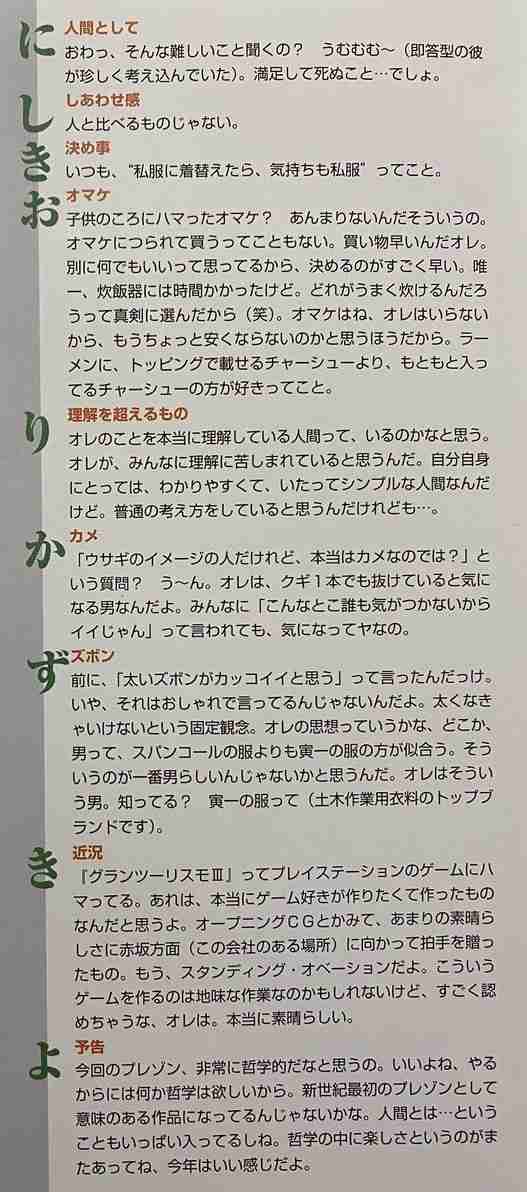 に
人間として
おわっ、そんな難しいこと聞くの？　うむむむ〜（即答型の彼
が珍しく考え込んでいた）。満足して死ぬこと…でしょ。
し
しあわせ感
人と比べるものじゃない。
き
決め事
いつも、“私服に着替えたら、気持ちも私服”ってこと。
お
オマケ
子供のころにハマったオマケ？　あんまりないんだそういうの。
オマケにつられて買うってこともない。買い物早いんだオレ。
別に何でもいいって思ってるから、決めるのがすごく早い。唯
一、炊飯器には時間かかったけど。どれがうまく炊けるんだろ
うって真剣に選んだから（笑）。オマケはね、オレはいらない
から、もうちょっと安くならないのかと思うほうだから。ラー
メンに、トッピングで載せるチャーシューより、もともと入っ
てるチャーシューの方が好きってこと。
り
理解を超えるもの
オレのことを本当に理解している人間って、いるのかなと思う。
オレが、みんなに理解に苦しまれていると思うんだ。自分自身
にとっては、わかりやすくて、いたってシンプルな人間なんだ
けど。普通の考え方をしていると思うんだけれども…。
か
カメ
「ウサギのイメージの人だけれど、本当はカメなのでは？」と
いう質問？　う〜ん。オレは、クギ１本でも抜けていると気に
なる男なんだよ。みんなに「こんなとこ誰も気がつかないから
イイじゃん」って言われても、気になってヤなの。
ず
ズボン
前に、「太いズボンがカッコイイと思う」って言ったんだっけ。
いや、それはおしゃれで言ってるんじゃないんだよ。太くなき
ゃいけないという固定観念。オレの思想っていうかな、どこか、
男って、スパンコールの服よりも寅一の服の方が似合う。そう
いうのが一番男らしいんじゃないかと思うんだ。オレはそうい
う男。知ってる？　寅一の服って（土木作業用衣料のトップブ
ランドです）。
き
近況
『グランツーリスモⅢ』ってプレイステーションのゲームにハ
マってる。あれは、本当にゲーム好きが作りたくて作ったもの
なんだと思うよ。オープニングＣＧとかみて、あまりの素晴ら
しさに赤坂方面（この会社のある場所）に向かって拍手を贈っ
たもの。もう、スタンディング・オベーションだよ。こういう
ゲームを作るのは地味な作業なのかもしれないけど、すごく認
めちゃうな、オレは。本当に素晴らしい。
よ
予告
今回のプレゾン、非常に哲学的だなと思うの。いいよね、やる
からには何か哲学は欲しいから。新世紀最初のプレゾンとして
意味のある作品になってるんじゃないかな。人間とは…という
こともいっぱい入ってるしね。哲学の中に楽しさというのがま
たあってね、今年はいい感じだよ。